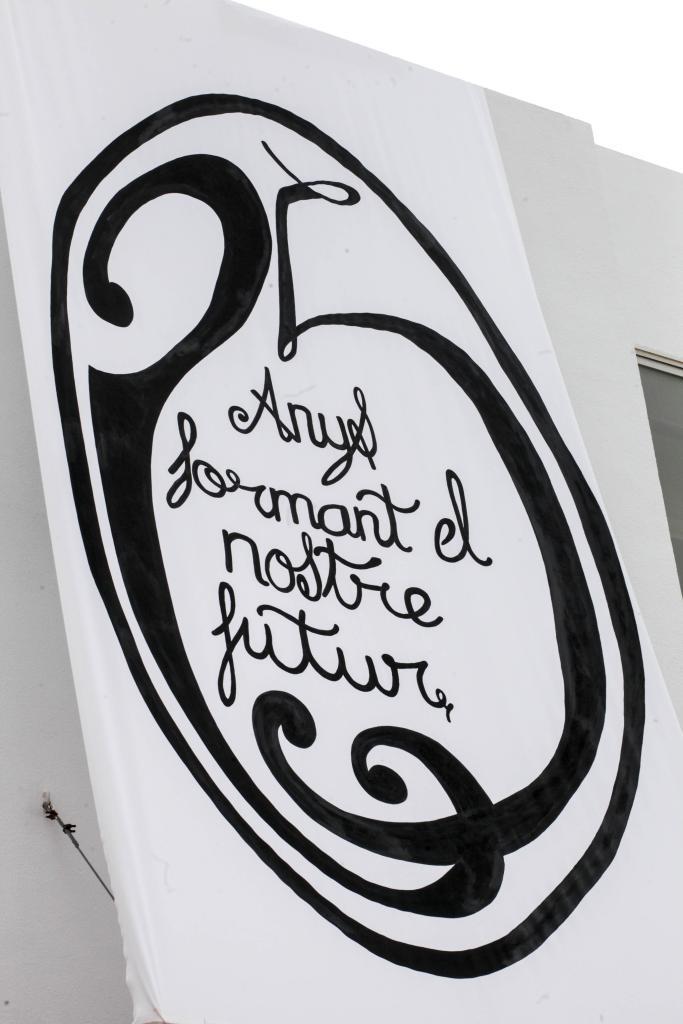 25
Anys
formant el
nostre
futur